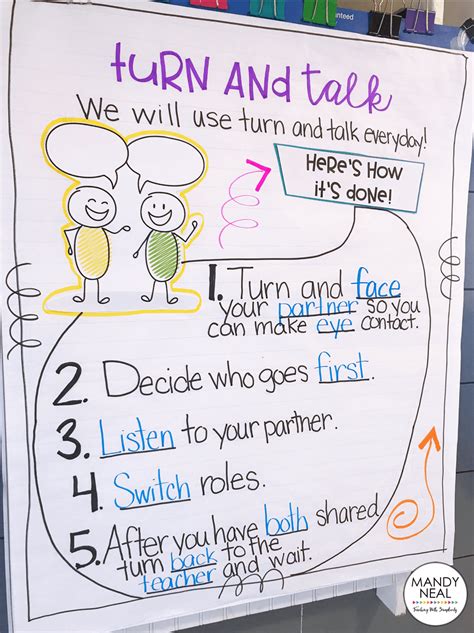 MANDY
NEAL
TURN AND Talk
We will use turn and talk everyday!
HERE'S HOW
it's DONE!
1. Turn and face
your partner so you
can make eye contact.
2. Decide who goes first.
3. Listen to your partner.
4. Switch roles.
5. After you have both shared
turn back to the
teacher and wait.
MANDY
NEAL
Teaching With Simplicity